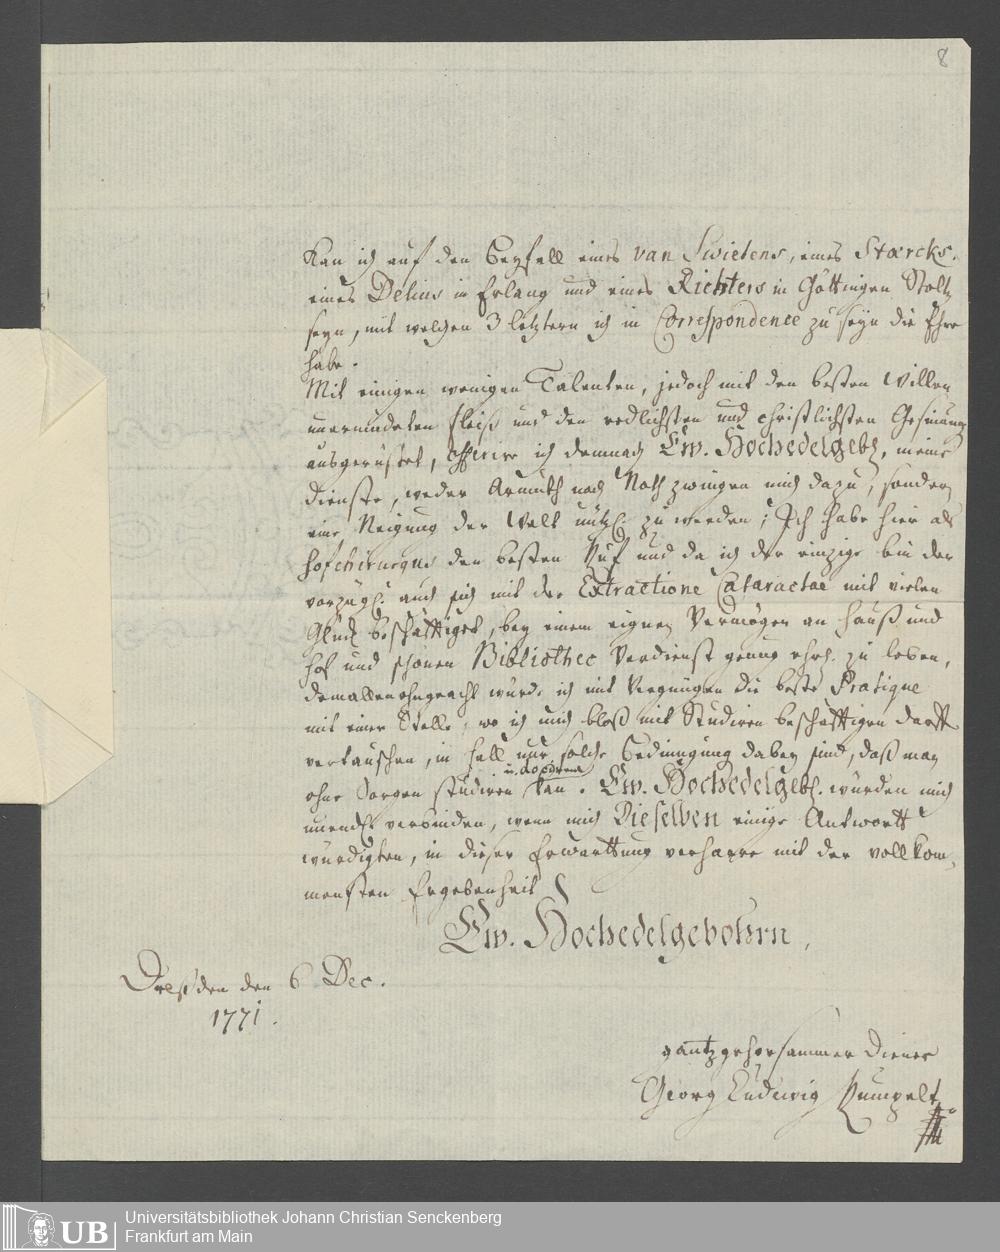 8
Kan ich auf den Beyfall eines van Swietens, eines Stoercks,
eines Delius in Erlang und eines Richters in Göttingen Stoltz
seyn, mit welchen 3 letztern ich in Correspondence zu seyn die Ehre
habe.
Mit einigen wenigen Talenten, jedoch mit den besten Willen
unermüdeten Fleiß und den redlichsten und christlichsten Gesinnung
ausgerüstet, offerire ich demnach Ew. Hochedelgeb. meine
Dienste, weder Armuth noch Noth zwingen mich dazu, sondern
eine Neigung der Welt nützl. zu werden; Ich habe hier als
Hofchirurgus den besten Ruf und da ich der einzige bin der
vorzügl. auch sich mit der Extractione Cataractae mit vielen
Glück beschäftiget, bey einem eignen Vermögen an Hauß und
Hof und schönen Bibliothec Verdienst genug ehrl. zu leben,
demallenohngeacht würde ich mit Vergnügen die beste Pratique
mit einer Stelle, wo ich mich bloß mit Studiren beschäftigen darff
vertauschen, in Fall nur solche Bedingung dabey sind, daß man
ohne Sorgen studiren u. dociren kan. Ew. Hochedelgeb. würden mich
unendl. verbinden, wenn mich Dieselben einige Antwortt
würdigten, in dieser Erwarttung verharre mit der vollkom¬
mensten Ergebenheit
Ew. Hochedelgebohrn,
Dreßden den 6 Dec.
1771.
gantz gehorsammer Diener
Georg Ludwig Rumpelt
UB
Universitätsbibliothek Johann Christian Senckenberg
Frankfurt am Main